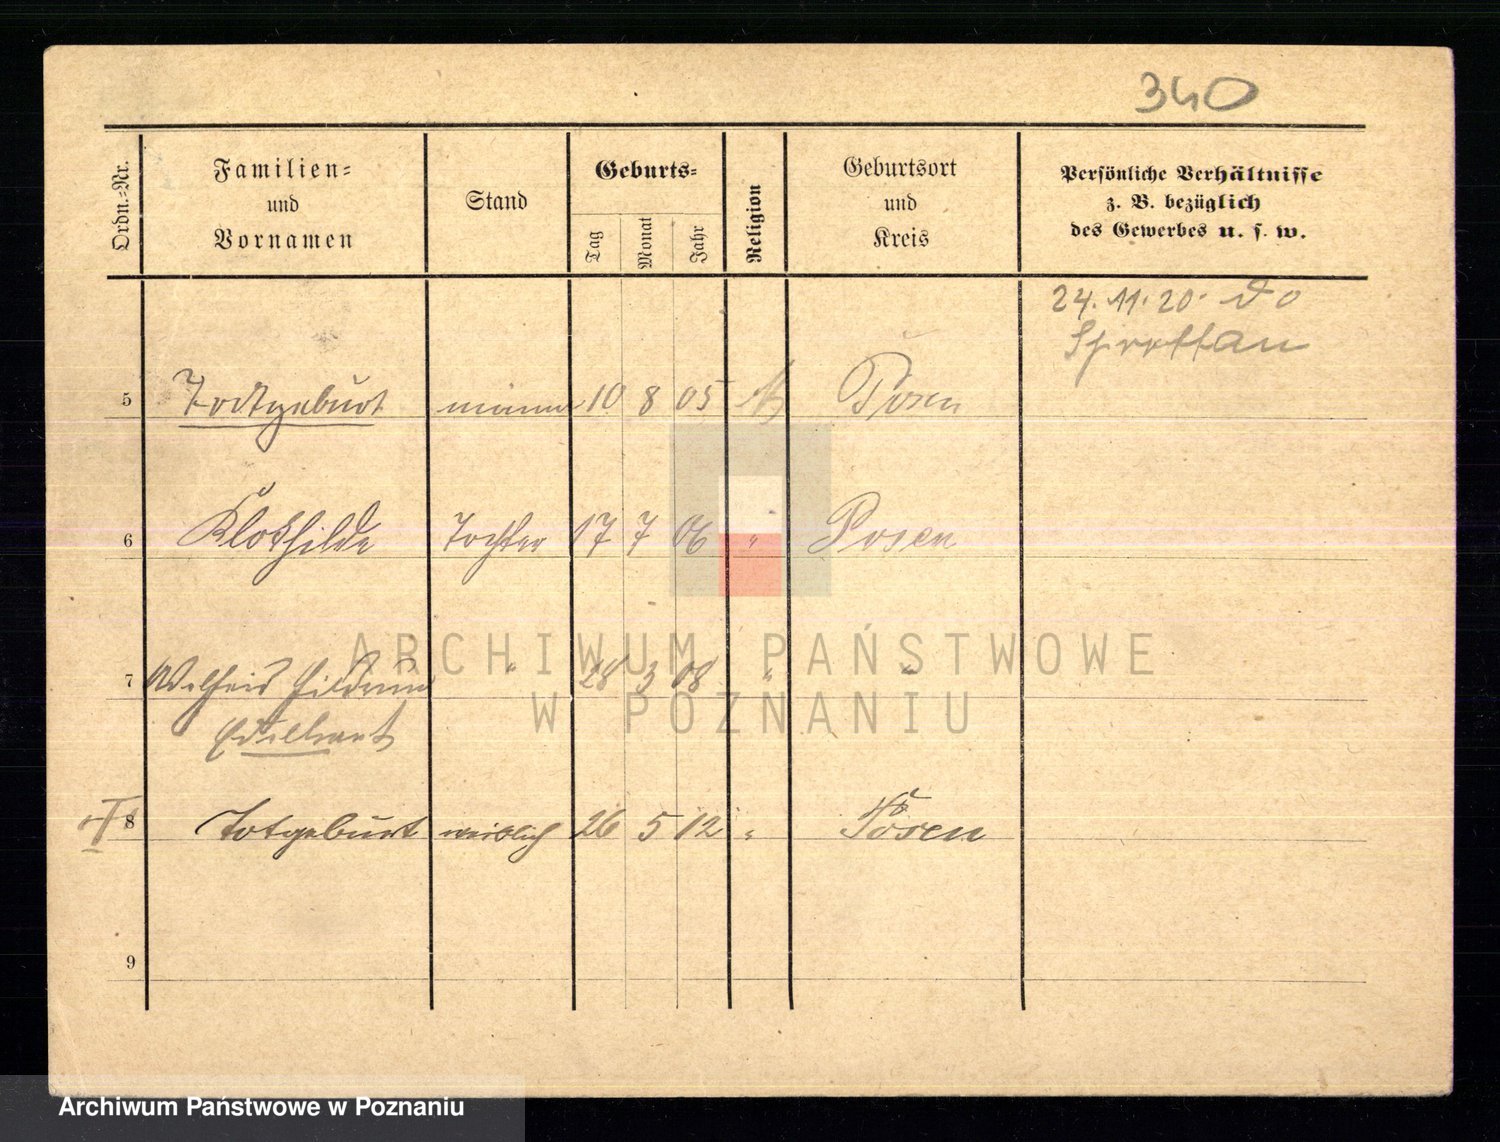 340
Ordn.-Nr.
Familien-
und
Vornamen
Stand
Geburts-
Tag
Monat
Jahr
Religion
Geburtsort
und
Kreis
Persönliche Verhältnisse
z. B. bezüglich
des Gewerbes u. s. w.
24. 11. 20.
5 Todtgeburt 10 8 05 Posen
6 Klothilde Tochter 17 7 06 " Posen
7 " 28 3 08 " "
8 Totgeburt weiblich 26 5 12 " Posen
9
ARCHIWUM PAŃSTWOWE
W POZNANIU
Archiwum Państwowe w Poznaniu